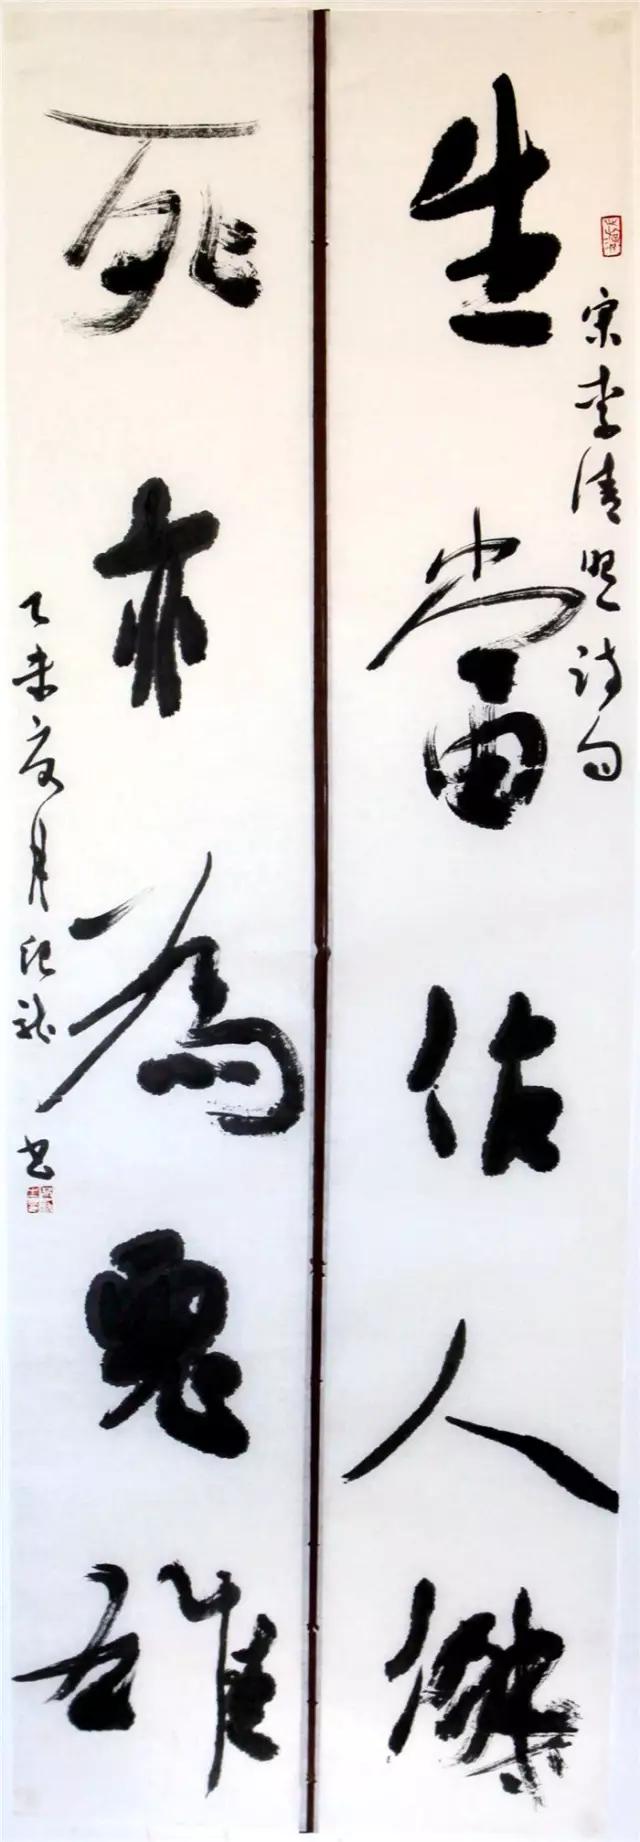 宋李清照诗句
生當作人傑
死亦為鬼雄
乙未夏月书